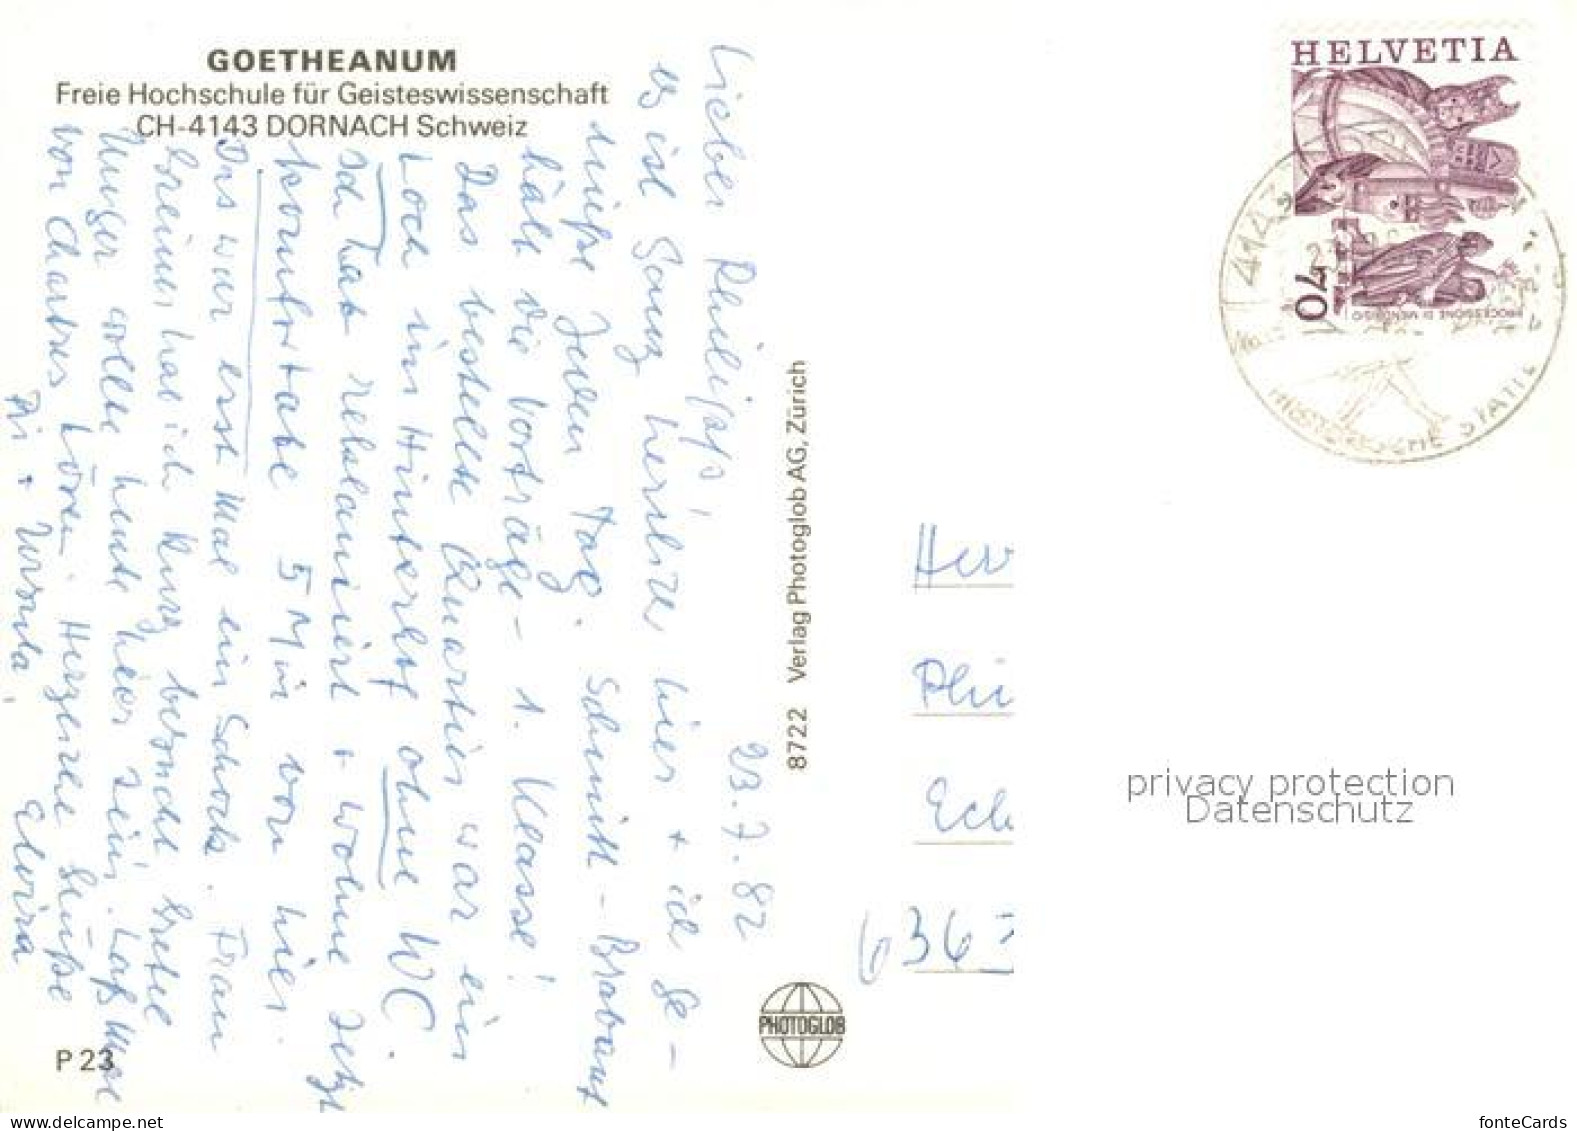 GOETHEANUM
Freie Hochschule für Geisteswissenschaft
CH-4143 DORNACH Schweiz
23.7.82
Lieber Philipp!
es ist ganz herrlich hier + ich ge-
nieße jeden Tag. Schmidt-Brabant
hält die Vorträge - 1. Klasse!
Das bestellte Quartier war ein
Loch im Hinterhof ohne WC.
Ich hab reklamiert + wohne jetzt
komfortabel 5 Min von hier.
Das war erst mal ein Schock. Frau
Greiner hab ich kurz besucht
Unger wollen heute hier sein. Laß mal
von Chartres hören Herzliche Grüße
Dir + Ursula, Elvira
8722 Verlag Photoglob AG, Zürich
PHOTOGLOB
P 23
HELVETIA
70
PROCESSIONE DI MENDRISIO
4143
Herr
Phi
Eck
636
privacy protection
Datenschutz
fonteCards